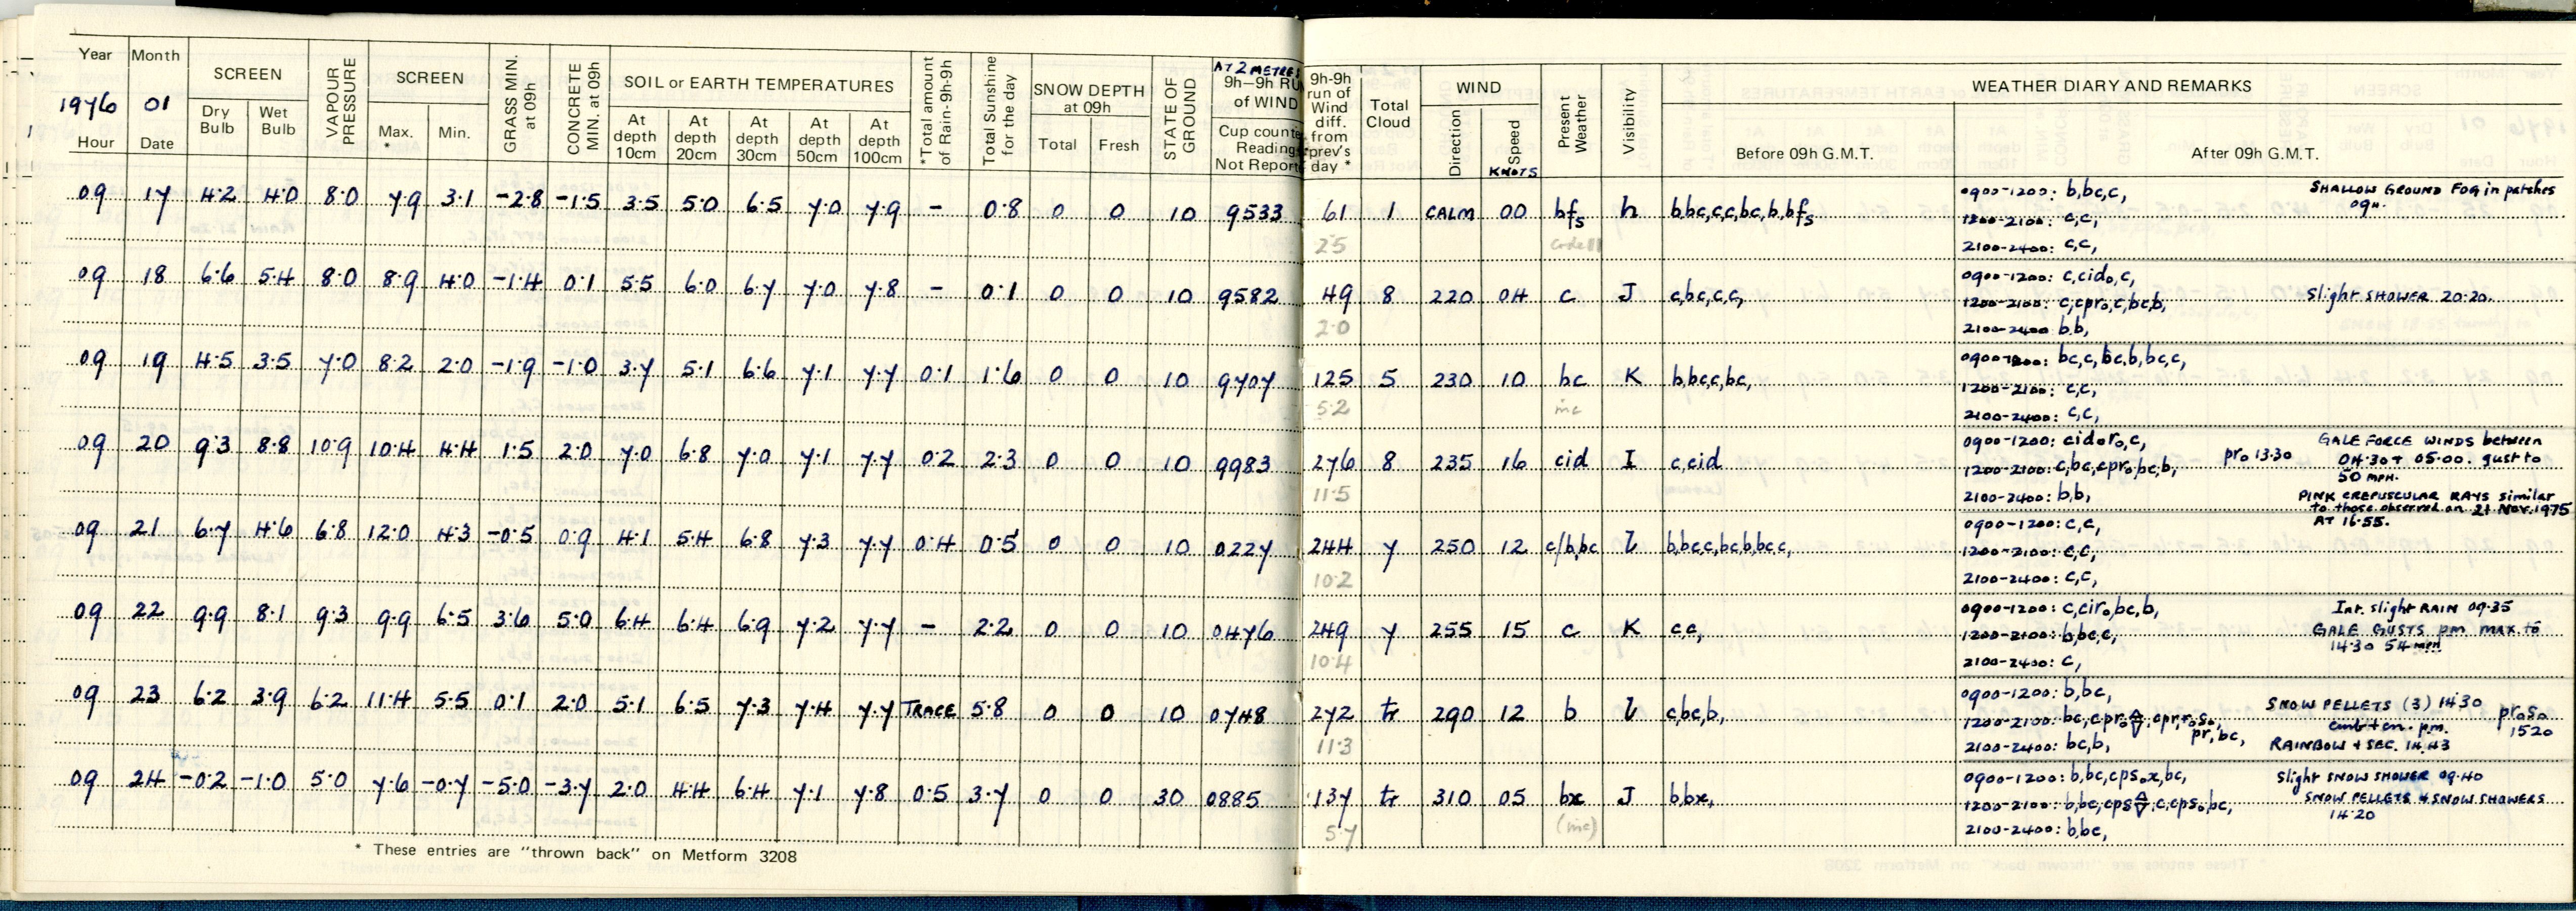 Year Month SCREEN VAPOUR PRESSURE SCREEN GRASS MIN. at 09h CONCRETE MIN. at 09h SOIL or EARTH TEMPERATURES *Total amount of Rain-9h-9h Total Sunshine for the day SNOW DEPTH at 09h STATE OF GROUND AT 2 METRES 9h-9h RUN of WIND 9h-9h run of Wind diff. from prev's day * Total Cloud WIND Present Weather Visibility WEATHER DIARY AND REMARKS
1976 01
Hour Date Dry Bulb Wet Bulb Max. * Min. At depth 10cm At depth 20cm At depth 30cm At depth 50cm At depth 100cm Total Fresh Cup counter Reading Not Reported Direction Speed KNOTS Before 09h G.M.T. After 09h G.M.T.
09 17 4.2 4.0 8.0 7.9 3.1 -2.8 -1.5 3.5 5.0 6.5 7.0 7.9 - 0.8 0 0 10 9533 61 1 CALM 00 bfs h b,bc,c,c,bc,b,bfs 0900-1200: b,bc,c, SHALLOW GROUND FOG in patches
09H.
1200-2100: c,c,
25 code 11 2100-2400: c,c,
09 18 6.6 5.4 8.0 8.9 4.0 -1.4 0.1 5.5 6.0 6.7 7.0 7.8 - 0.1 0 0 10 9582 49 8 220 04 c J c,bc,c,c, 0900-1200: c,cido,c,
1200-2100: c,cpro,c,bc,b, Slight SHOWER 20.20.
2.0 2100-2400 b,b,
09 19 4.5 3.5 7.0 8.2 2.0 -1.9 -1.0 3.7 5.1 6.6 7.1 7.7 0.1 1.6 0 0 10 9707 125 5 230 10 bc K b,bc,c,bc, 0900-1200: bc,c,bc,b,bc,c,
1200-2100: c,c,
5.2 inc 2100-2400: c,c,
09 20 9.3 8.8 10.9 10.4 4.4 1.5 2.0 7.0 6.8 7.0 7.1 7.7 0.2 2.3 0 0 10 9983 276 8 235 16 cid I c,cid 0900-1200: cidoro,c, GALE FORCE WINDS between
1200-2100: c,bc,cpro,bc,b, pro 13.30 04.30 + 05.00. gust to
50 MPH.
11.5 2100-2400: b,b, PINK CREPUSCULAR RAYS similar
to those observed on 21 Nov. 1975
AT 16.55.
09 21 6.7 4.6 6.8 12.0 4.3 -0.5 0.9 4.1 5.4 6.8 7.3 7.7 0.4 0.5 0 0 10 0227 244 7 250 12 c/b,bc l b,bc,c,bc,b,bc,c, 0900-1200: c,c,
1200-2100: c,c,
10.2 2100-2400: c,c,
09 22 9.9 8.1 9.3 9.9 6.5 3.6 5.0 6.4 6.4 6.9 7.2 7.7 - 2.2 0 0 10 0476 249 7 255 15 c K c,c, 0900-1200: c,ciro,bc,b, Int. slight RAIN 09.35
1200-2100: b,bc,c, GALE GUSTS pm MAX. to
14.30 54 mph
10.4 2100-2400: c,
09 23 6.2 3.9 6.2 11.4 5.5 0.1 2.0 5.1 6.5 7.3 7.4 7.7 TRACE 5.8 0 0 10 0748 272 tr 290 12 b l c,bc,b, 0900-1200: b,bc, SNOW PELLETS (3) 14.30
1200-2100: bc,cpro pr,bc, cmb + cn. p.m. proso 1520
11.3 2100-2400: bc,b, RAINBOW + SEC. 14.43
09 24 -0.2 -1.0 5.0 7.6 -0.7 -5.0 -3.7 2.0 4.4 6.4 7.1 7.8 0.5 3.7 0 0 30 0885 137 tr 310 05 bx J b,bx, 0900-1200: b,bc,cpsox,bc, Slight SNOW SHOWER 09.40
1200-2100: b,bc,cps c,cpso,bc, SNOW PELLETS & SNOW SHOWERS
14.20
5.7 (inc) 2100-2400: b,bc,
* These entries are "thrown back" on Metform 3208